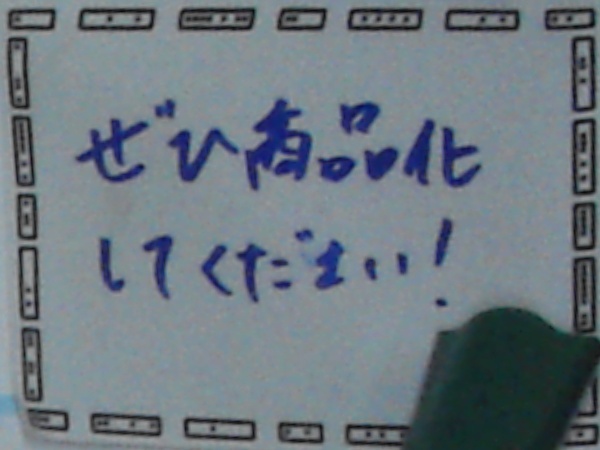 ぜひ商品化
してください!